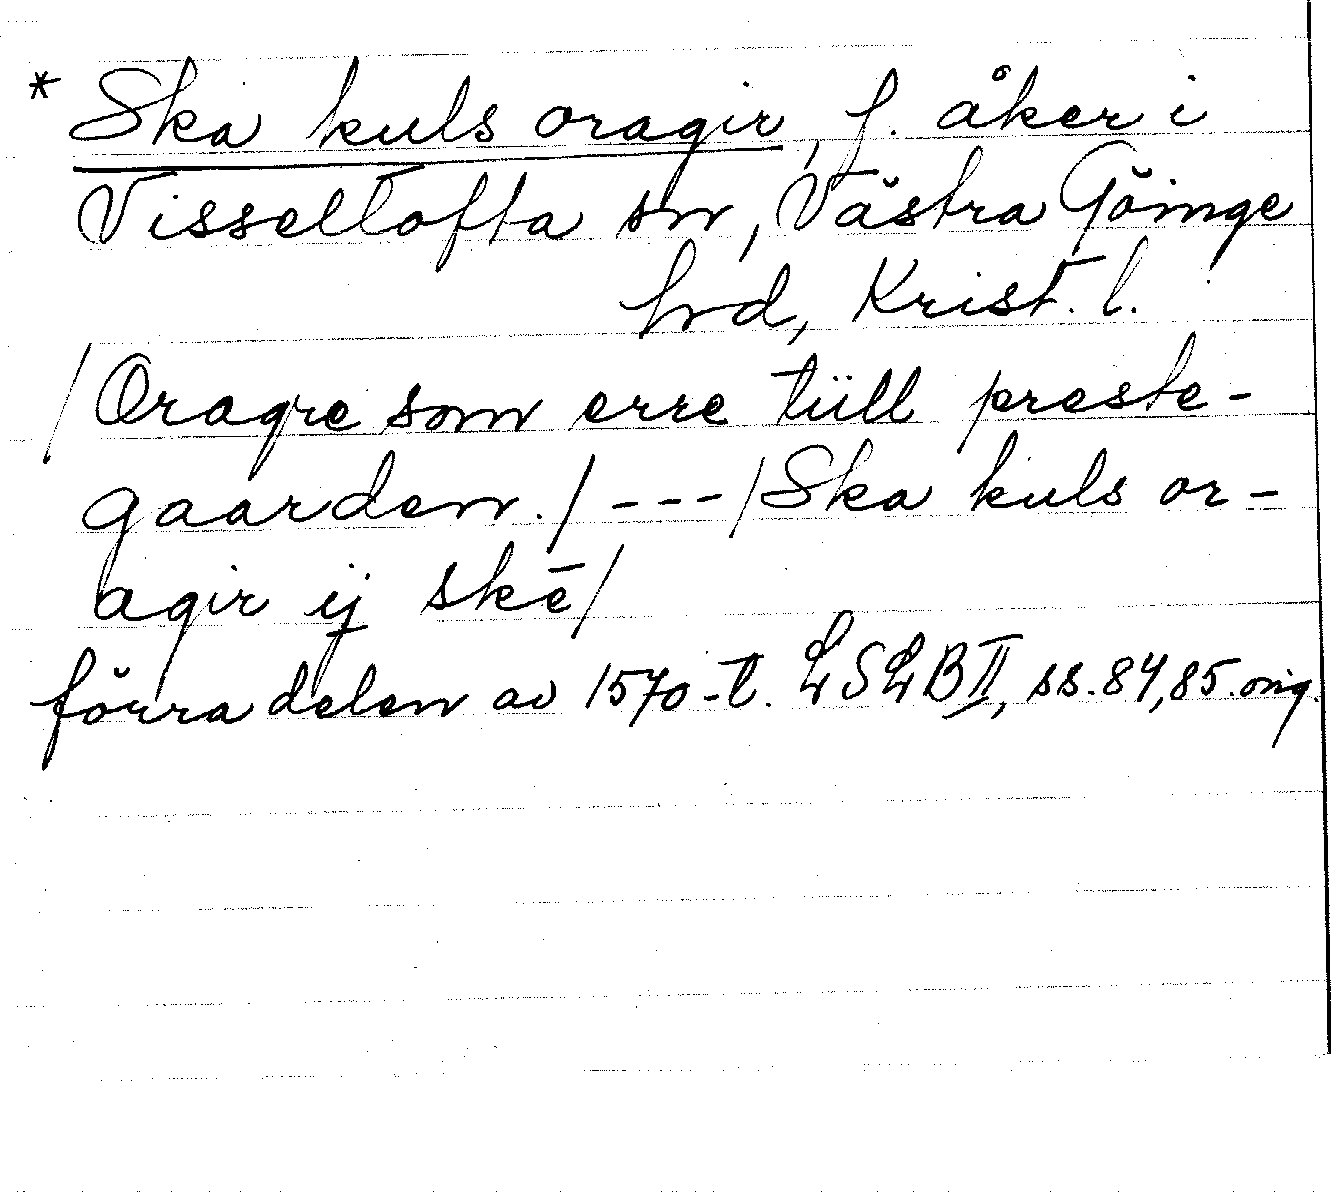 * Ska kuls oragir, f. åker i
Visseltofta sn, Västra Göinge
hrd, Krist. l.
/Oragre som erre tüll preste-
gaarden./---/Ska kuls or-
agir ij skē/
förra delen av 1570-t. LSLB II, ss. 84, 85. orig.